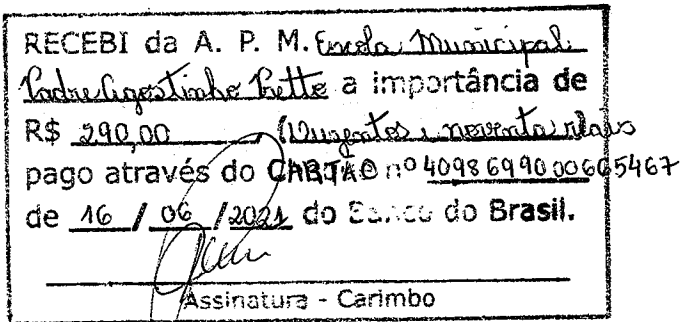 RECEBI da A. P. M. Escola Municipal
Padre Agostinho Pretto a importância de
R$ 290,00 (Duzentos e noventa reais
pago através do CARTÃO nº 4098699000665467
de 16 / 06 / 2021 do Banco do Brasil.
Assinatura - Carimbo